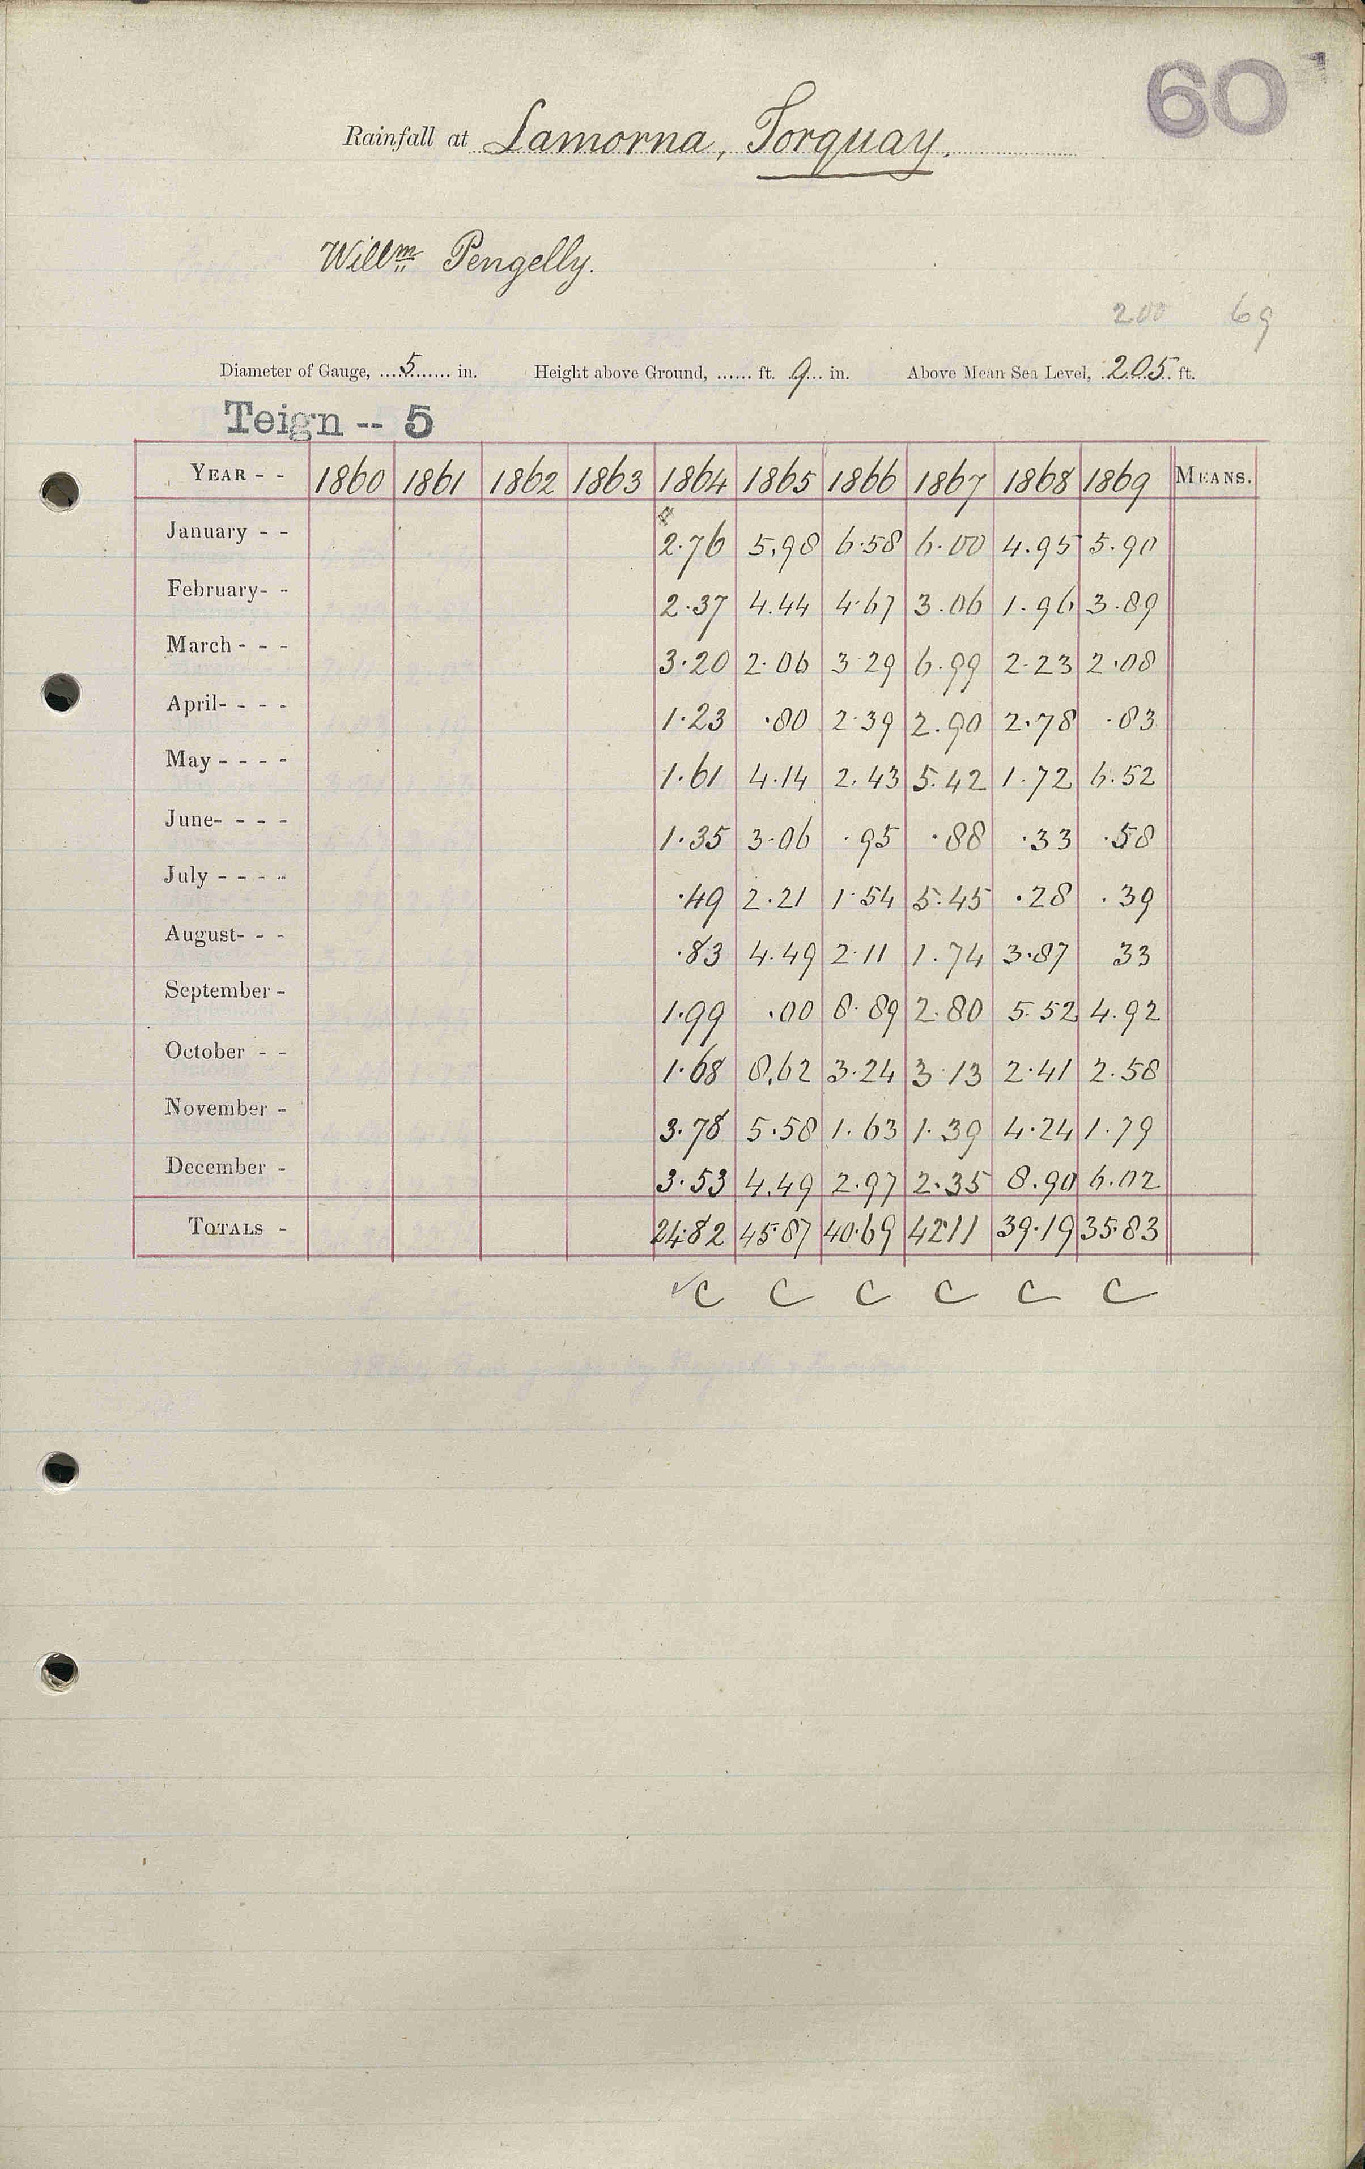 60
Rainfall at Lamorna, Torquay.
Willm Pengelly.
200 69
Diameter of Gauge, 5 in. Height above Ground, ...... ft. 9 in. Above Mean Sea Level, 205 ft.
Teign -- 5
YEAR - - 1860 1861 1862 1863 1864 1865 1866 1867 1868 1869 MEANS.
January - - 2.76 5.98 6.58 6.00 4.95 5.90
February- - 2.37 4.44 4.67 3.06 1.96 3.89
March - - - 3.20 2.06 3.29 6.99 2.23 2.08
April- - - - 1.23 .80 2.39 2.90 2.78 .83
May - - - - 1.61 4.14 2.43 5.42 1.72 6.52
June- - - - 1.35 3.06 .95 .88 .33 .58
July - - - - .49 2.21 1.54 5.45 .28 .39
August- - - .83 4.49 2.11 1.74 3.87 33
September - 1.99 .00 8.89 2.80 5.52 4.92
October - - 1.68 8.62 3.24 3.13 2.41 2.58
November - 3.78 5.58 1.63 1.39 4.24 1.79
December - 3.53 4.49 2.97 2.35 8.90 6.02
TOTALS - 24.82 45.87 40.69 42.11 39.19 35.83
C C C C C C